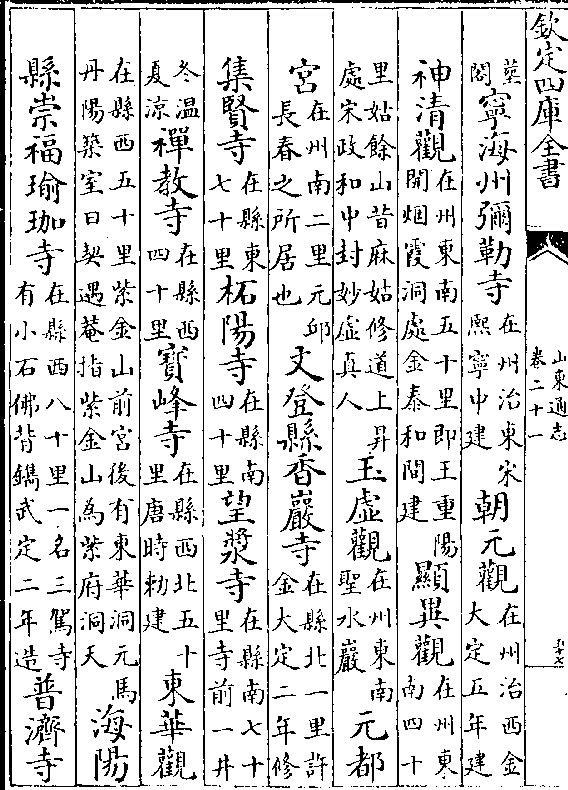 欽定四庫全書
山東通志
卷二十一
閣寧海州彌勒寺在州治東宋熙寧中建朝元觀在州治西金大定五年建
神清觀在州東南五十里即王重陽開烟霞洞處金泰和間建顯異觀在州東南四十
里姑餘山昔麻姑修道上昇處宋政和中封妙虛真人玉虛觀在州東南聖水巖元都
宮在州南二里元邱長春之所居也文登縣香巖寺在縣北一里許金大定二年修
集賢寺在縣東七十里柘陽寺在縣南四十里望漿寺在縣南七十里寺前一井
冬温夏涼禪教寺在縣西四十里寶峰寺在縣西北五十里唐時勅建東華觀
在縣西五十里紫金山前宮後有東華洞元馬丹陽築室曰契遇菴指紫金山為紫府洞天海陽
縣崇福瑜珈寺在縣西八十里一名三駕寺有小石佛背鐫武定二年造普濟寺